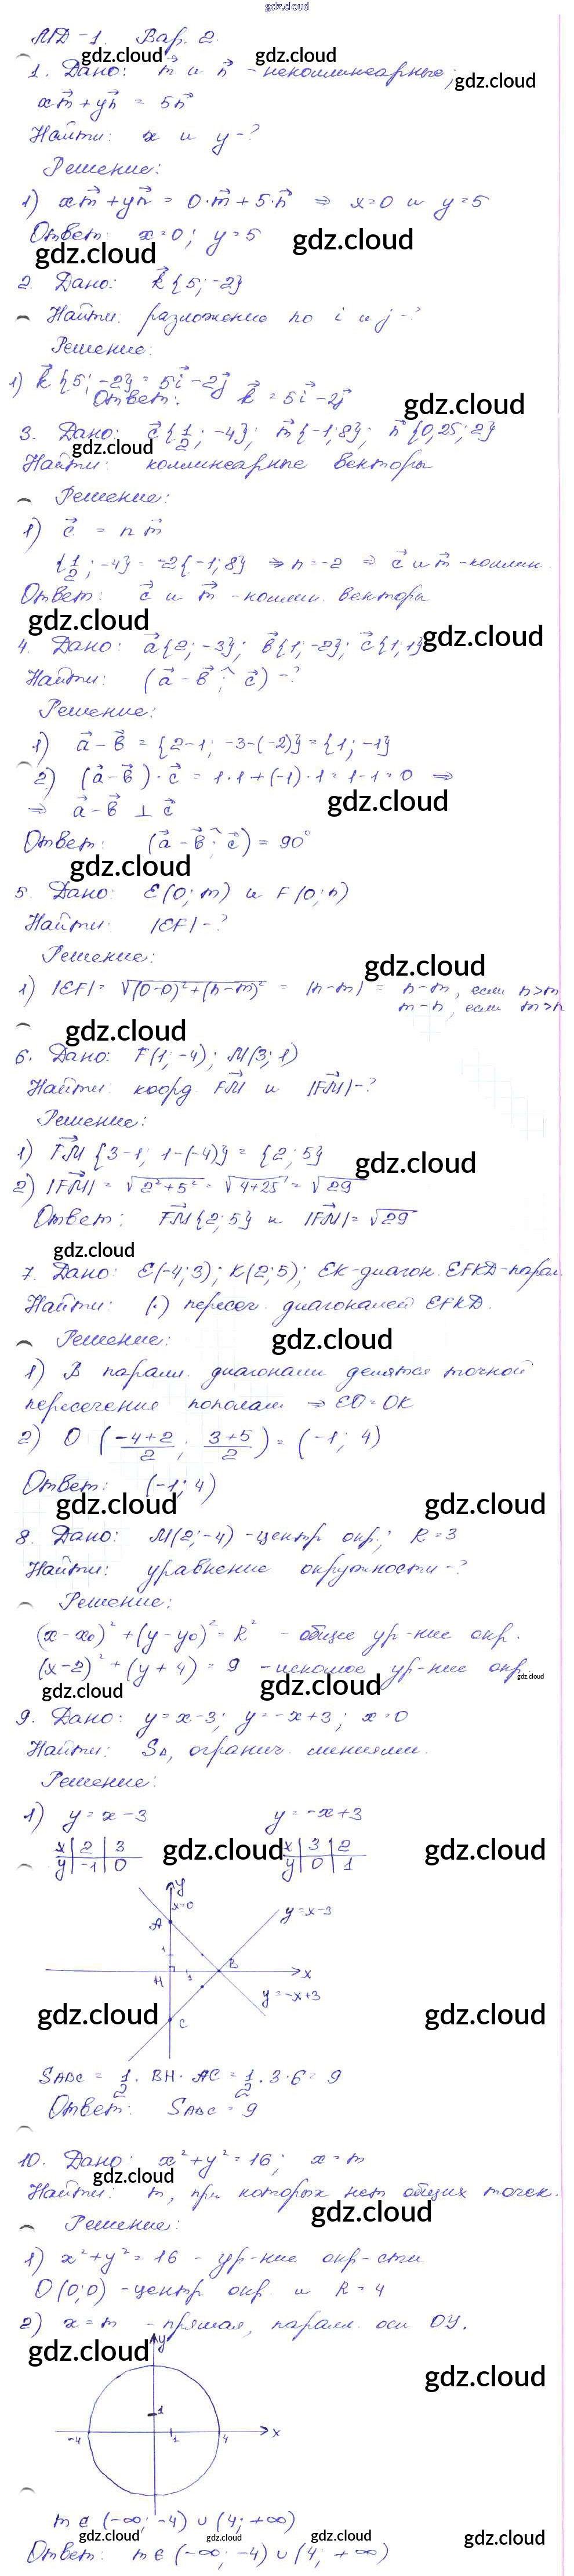 gdz.cloud
МД-1. Вар. 2.
gdz.cloud gdz.cloud
1. Дано: m⃗ и n⃗ - неколлинеарные; gdz.cloud
xm⃗ + yn⃗ = 5n⃗
Найти: x и y - ?
Решение:
1) xm⃗ + yn⃗ = 0·m⃗ + 5·n⃗ ⇒ x=0 и y=5
Ответ: x=0; y=5
gdz.cloud gdz.cloud
2. Дано: k⃗{5; -2}
Найти: разложение по i и j - ?
Решение:
1) k⃗{5; -2} = 5i⃗ - 2j⃗
Ответ: k⃗ = 5i⃗ - 2j⃗
gdz.cloud
3. Дано: c⃗{1/2; -4}; m⃗{-1; 8}; n⃗{0,25; 2}
gdz.cloud
Найти: коллинеарные векторы
Решение:
1) c⃗ = n m⃗
{1/2; -4} = -2{-1; 8} ⇒ n = -2 ⇒ c⃗ и m⃗ - коллин.
Ответ: c⃗ и m⃗ - коллин. векторы
gdz.cloud
4. Дано: a⃗{2; -3}; b⃗{1; -2}; c⃗{1; 1} gdz.cloud
Найти: (a⃗ - b⃗ ^ c⃗) - ?
Решение:
1) a⃗ - b⃗ = {2-1; -3-(-2)} = {1; -1}
2) (a⃗ - b⃗)·c⃗ = 1·1+(-1)·1 = 1-1 = 0 ⇒
⇒ a⃗ - b⃗ ⊥ c⃗
gdz.cloud
Ответ: (a⃗ - b⃗ ^ c⃗) = 90°
gdz.cloud
5. Дано: E(0; m) и F(0; n)
Найти: |EF| - ?
Решение:
gdz.cloud
1) |EF| = √((0-0)²+(n-m)²) = |n-m| = n-m, если n>m
m-n, если m>n
gdz.cloud
6. Дано: F(1; -4); M(3; 1)
Найти: коорд. FM⃗ и |FM⃗| - ?
Решение:
1) FM⃗{3-1; 1-(-4)} = {2; 5}
gdz.cloud
2) |FM⃗| = √(2²+5²) = √(4+25) = √29
Ответ: FM⃗{2; 5} и |FM⃗| = √29
gdz.cloud
7. Дано: E(-4; 3); K(2; 5); EK-диагон. EFKD-парал.
Найти: (·) пересеч. диагоналей EFKD.
Решение:
gdz.cloud
1) В паралл. диагонали делятся точкой
пересечения пополам ⇒ EO=OK
2) O ((-4+2)/2; (3+5)/2) = (-1; 4)
Ответ: (-1; 4)
gdz.cloud gdz.cloud
8. Дано: M(2; -4) - центр окр.; R=3
Найти: уравнение окружности - ?
Решение:
(x-x₀)² + (y-y₀)² = R² - общее ур-ние окр.
(x-2)² + (y+4) = 9 - искомое ур-ние окр.
gdz.cloud gdz.cloud gdz.cloud
9. Дано: y=x-3; y=-x+3; x=0
Найти: S△, огранич. линиями.
Решение:
1) y=x-3 y=-x+3
x 2 3 x 3 2
gdz.cloud gdz.cloud
y -1 0 y 0 1
y
x=0
A y=x-3
1
B
H 1 x
y=-x+3
gdz.cloud gdz.cloud
C
S ABC = 1/2 · BH · AC = 1/2 · 3 · 6 = 9
Ответ: S ABC = 9
10. Дано: x²+y²=16; x=m
gdz.cloud
Найти: m, при которых нет общих точек.
gdz.cloud
Решение:
1) x²+y²=16 - ур-ние окр-сти
O(0; 0) - центр окр. и R=4
2) x=m - прямая, паралл. оси OY.
gdz.cloud y
gdz.cloud
1
-4 1 4 x
m ∈ (-∞; -4) ∪ (4; +∞)
gdz.cloud gdz.cloud gdz.cloud gdz.cloud
Ответ: m ∈ (-∞; -4) ∪ (4; +∞)